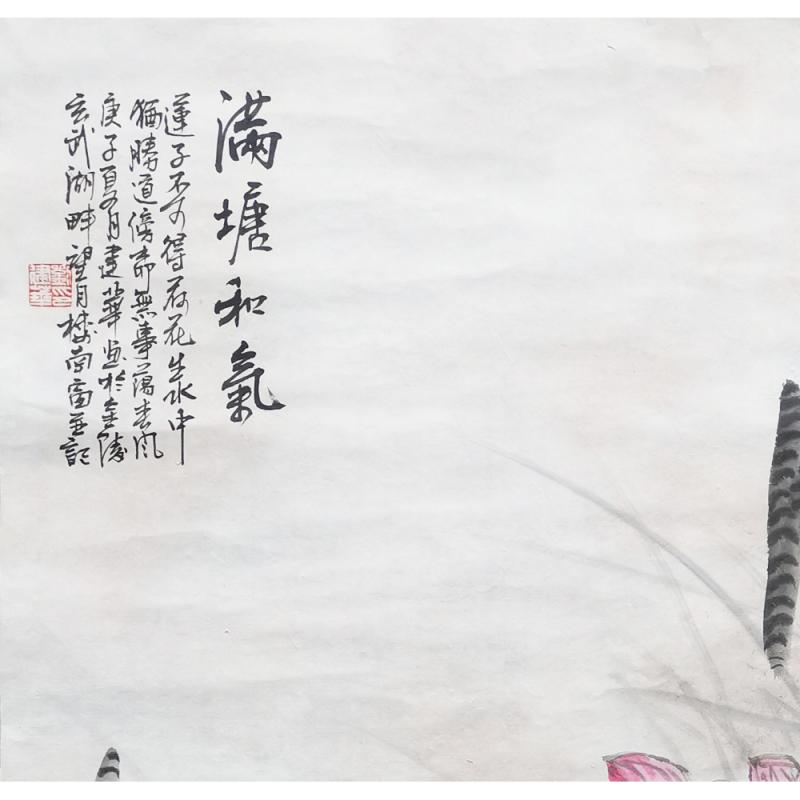 满塘和氣
蓮子不可得荷花生水中
猶勝道傍柳無事蕩春风
庚子夏月建華画於金陵
玄武湖畔望月楼南窗并記